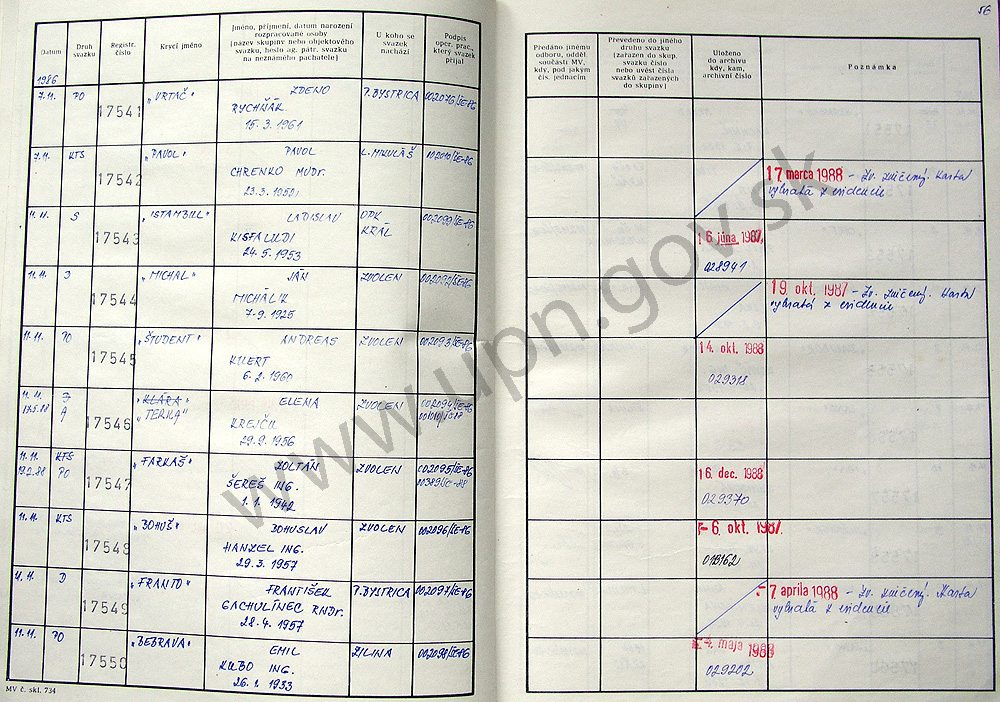 56
Datum
Druh svazku
Registr. číslo
Krycí jméno
Jméno, příjmení, datum narození
rozpracované osoby
(název skupiny nebo objektového
svazku, heslo ag. pátr. svazku
na neznámého pachatele)
U koho se
svazek
nachází
Podpis
oper. prac.,
který svazek
přijal
Předáno jinému
odboru, odděl.
součásti MV,
kdy, pod jakým
čís. jednacím
Převedeno do jiného
druhu svazku
(zařazen do skup.
svazku číslo
nebo uvést čísla
svazků zařazených
do skupiny)
Uloženo
do archivu
kdy, kam,
archivní číslo
Poznámka
1986
7.11. PO 17541 „VRTAČ" ZDENO P. BYSTRICA 002076/ŠE-86
RYCHŇÁK
15. 3. 1961
7.11. KTS 17542 „PAVOL" PAVOL L. MIKULÁŠ
CHRENKO MUDr.
23. 3. 1950
17 marca 1988 – Zv. zničený. Karta
vybratá z evidencie
11.11. S 17543 „ISTAMBUL" LADISLAV
KRAL 002099/ŠE-86
KISFALUDI
24. 5. 1953
16 júna 1987
028941
11.11. D 17544 „MICHAL" JÁN ZVOLEN 002092/ŠE-86
MICHÁLIK
7-9. 1925
19. okt. 1987 – Zv. zničený. Karta
vybratá z evidencie
11.11. PO 17545 „ŠTUDENT" ANDREAS ZVOLEN 002093/ŠE-86
KILERT
6. 2. 1960
14. okt. 1988
029318
11.11. 17546 „KLÁRA" ELENA ZVOLEN 002094/ŠE-86
A „TERKA"
KREJČÍ
29. 9. 1956
11.11. KTS 17547 „FARKAŠ" ZOLTÁN ZVOLEN 002095/ŠE-86
19.2.88 PO
ŠEREŠ ING.
1. 1. 1942
16. dec. 1988
029370
11.11. KTS 17548 „BOHUŠ" BOHUSLAV ZVOLEN 002096/ŠE-86
HANZEL ING.
29. 3. 1957
– 6. okt. 1987
11.11. D 17549 „FRANTO" FRANTIŠEK P. BYSTRICA 002097/ŠE-86
GACHULINEC RNDr.
28. 4. 1957
– 7 apríla 1988 – Zv. zničený. Karta
vybratá z evidencie
11.11. PO 17550 „BEBRAVA" EMIL ŽILINA 002098/ŠE-86
KUBO ING.
26. 1. 1933
– 4. mája 1988
029202
MV č. skl. 734
www.upn.gov.sk